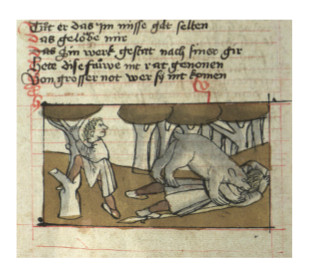 Tůt er das im nisse gat selten
das gelob mir
das Sin werk gestat nach siner gir
Hete dise frůwe nit rat genomen
Von grosser not wer sy nit komen